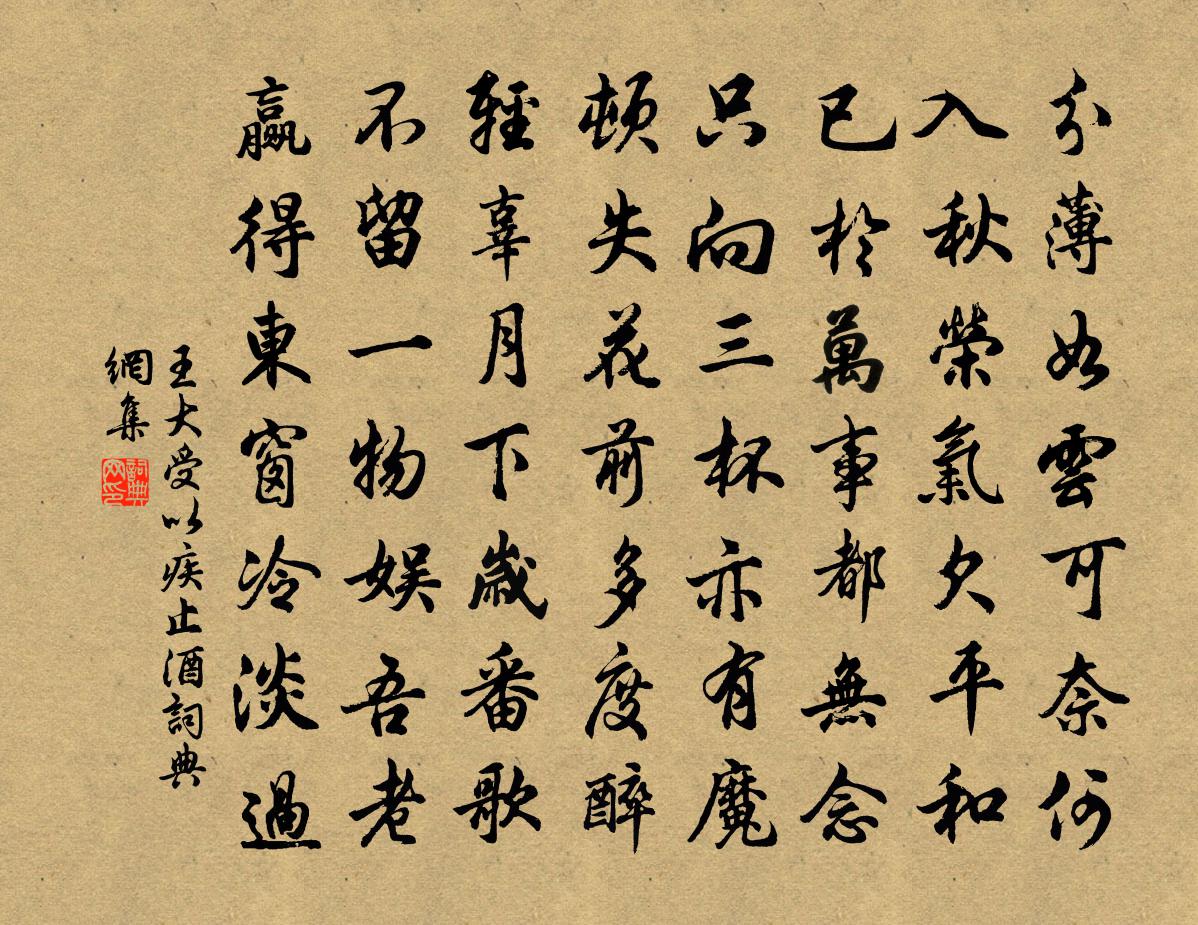 分薄如雲可奈何
入秋榮氣欠平和
已於萬事都無念
只向三杯亦有魔
頓失花前多度醉
輕辜月下幾番歌
不留一物娛吾老
贏得東窗冷淡過
王大受以疾止酒詞典
網集
詞典網印